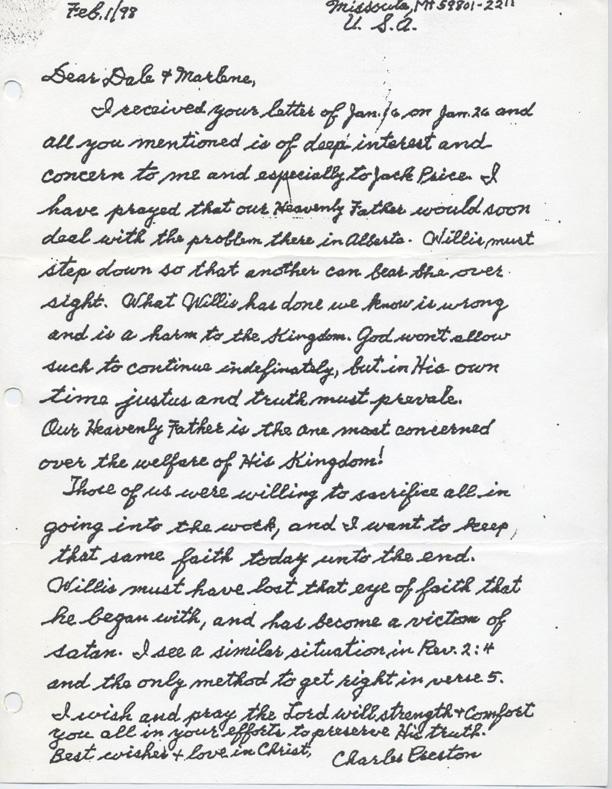 Feb. 1/98
Missoula, Mt 59801-2211
U. S. A.
Dear Dale & Marlene,
I received your letter of Jan. 16 on Jan. 26 and
all you mentioned is of deep interest and
concern to me and especially to Jack Price. I
have prayed that our Heavenly Father would soon
deal with the problem there in Alberta. Willis must
step down so that another can bear the over
sight. What Willis has done we know is wrong
and is a harm to the Kingdom. God won't allow
such to continue indefinately, but in His own
time justus and truth must prevale.
Our Heavenly Father is the one most concerned
over the welfare of His Kingdom!
Those of us were willing to sacrifice all in
going into the work, and I want to keep,
that same faith today unto the end.
Willis must have lost that eye of faith that
he began with, and has become a victom of
satan. I see a similar situation in Rev. 2:4
and the only method to get right in verse 5.
I wish and pray the Lord will strength & comfort
you all in your efforts to preserve His truth.
Best wishes & love in Christ,
Charles Preston